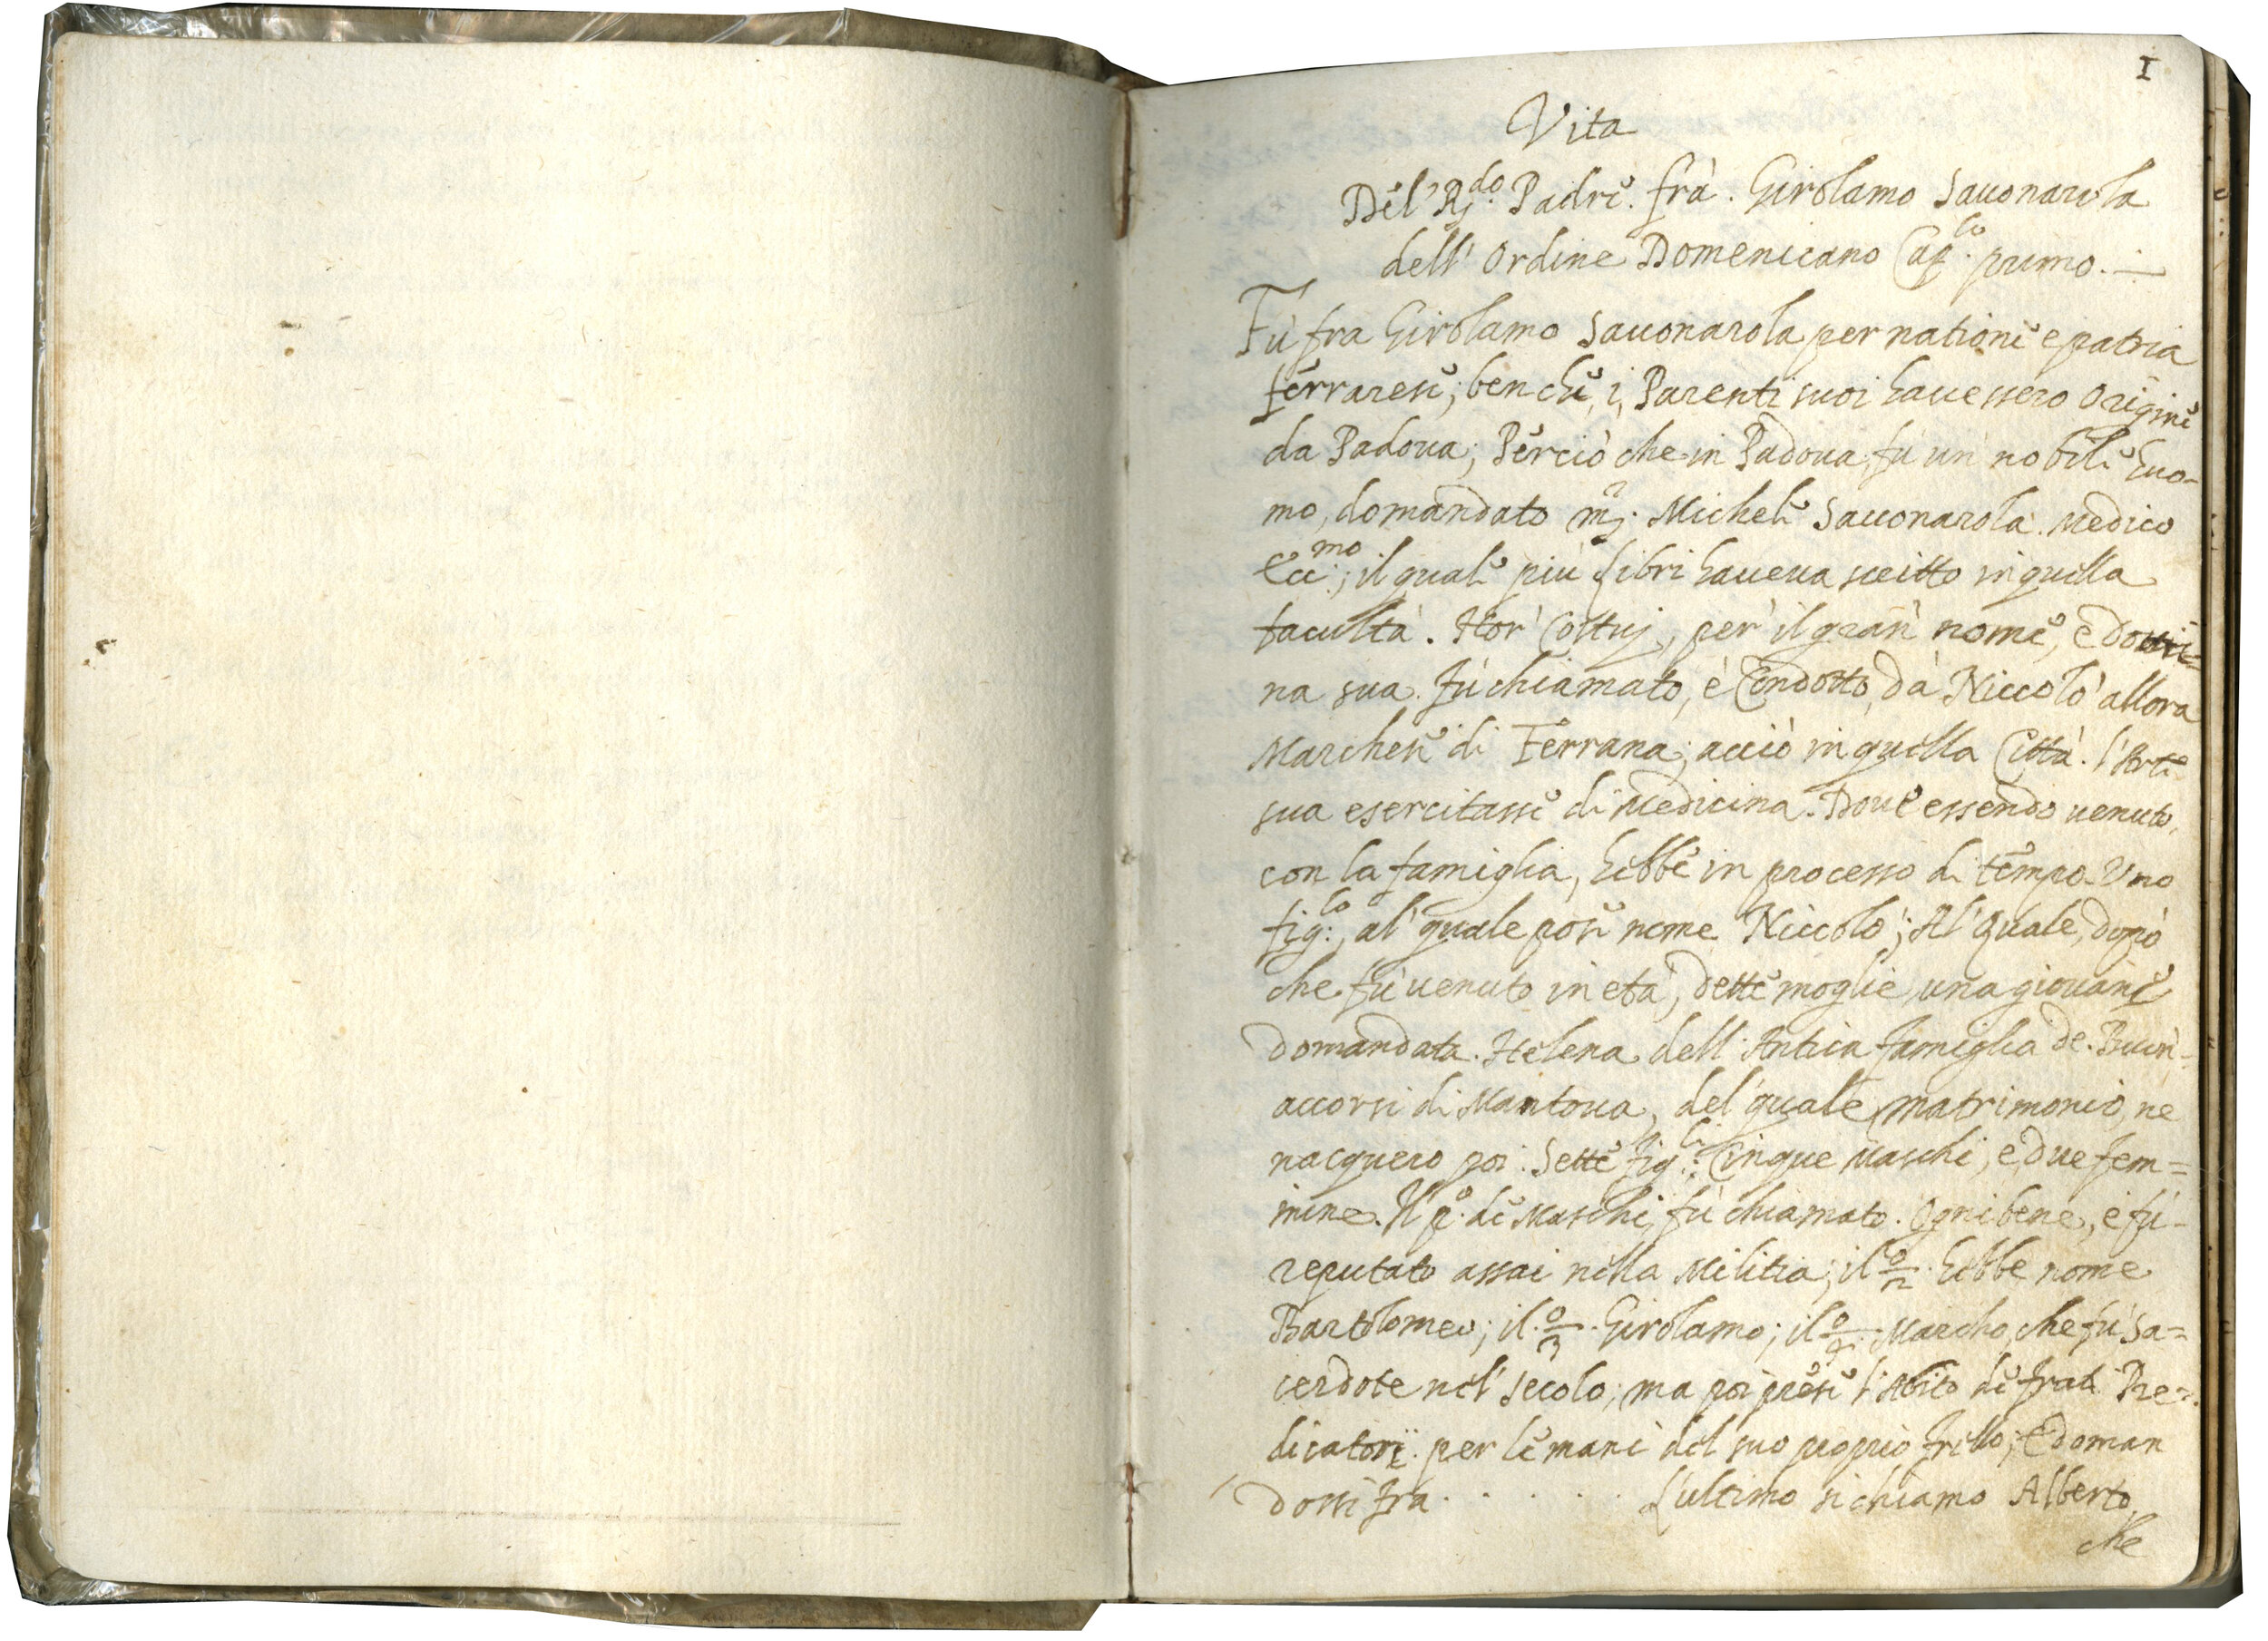 1
Vita
Del' R.do Padre. frà. Girolamo Sauonarola
dell' Ordine Domenicano Cap.lo primo.
Fù fra Girolamo Sauonarola per natione e patria
ferrarese; ben che, i, Parenti suoi hauessero Origine
da Padoua; Perciò che in Padoua, fù un' nobile huo-
mo, domandato m.r Michele Sauonarola. Medico
Ecc.mo; il quale più libri haueua scritto in quella
facultà. Hor' Costuj, per' il gran' nome, è dottri=
na sua. fù chiamato, è Condotto, dà Niccolò allora
Marchese di Ferrara; acciò in quella Città. l'Arte
sua esercitasse di Medicina. Doue essendo uenuto,
con la famiglia, hebbe in processo di tempo. Uno
fig.lo, al' quale pose nome Niccolò; Al' Quale, dopò
che fù uenuto in età, dette moglie una giouane
domandata. Helena dell' Antica famiglia de. Buon-
accorsi di Mantoua, del' quale matrimonio, ne
nacquero poi. Sette fig.li: Cinque Maschi, e due fem=
mine. Il p.o de Maschi, fù chiamato. Ognibene, e fù-
reputato assai nella Militia; il 2o. hebbe nome
Bartolomeo; il. 3o. Girolamo; il 4o. Marcho, che fù Sa=
cerdote nel' secolo; ma poi prese l'Abito de frati Pre=
dicatori. per le mani del suo proprio frello; E doman
dossi fra . . . . . . L'ultimo si chiamo Alberto.
che